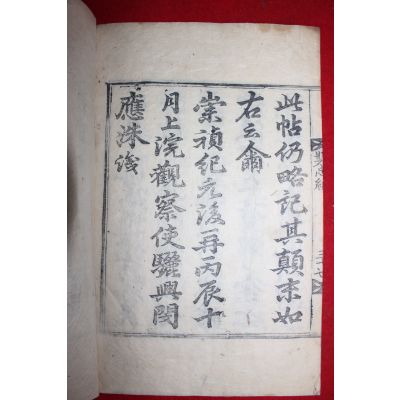 此帖仍略記其顛末如
右云爾
崇禎紀元後再丙辰十
月上浣觀察使驪興閔
應洙跋